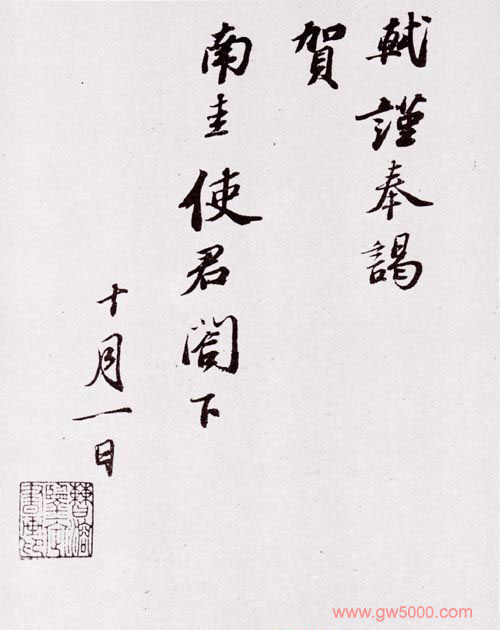 軾謹奉謁
賀
南圭使君閤下
十月一日
www.gw5000.com